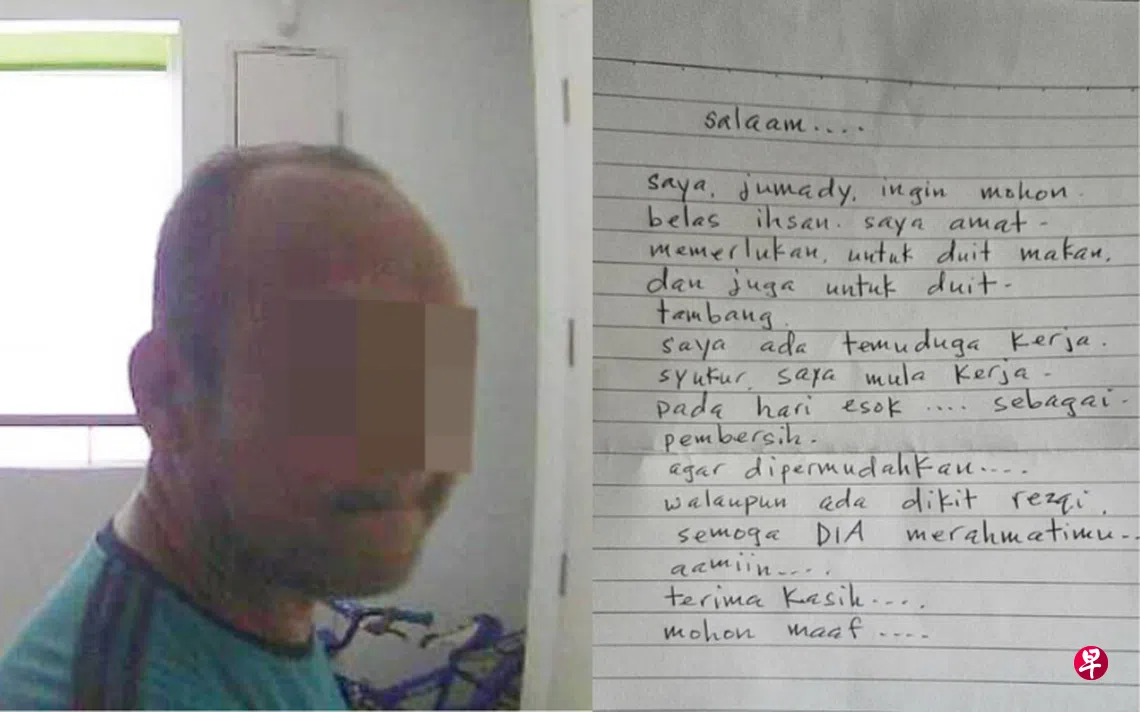 salaam....
saya, jumady, ingin mohon.
belas ihsan. saya amat-
memerlukan, untuk duit makan,
dan juga untuk duit-
tambang.
saya ada temuduga kerja.
syukur, saya mula kerja-
pada hari esok .... sebagai-
pembersih.
agar dipermudahkan....
walaupun ada dikit rezqi,
semoga DIA merahmatimu..
aamiin....
terima kasih....
mohon maaf ....
早